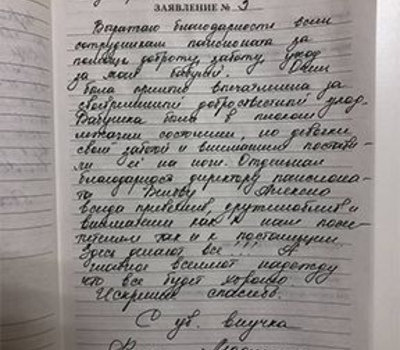 ЗАЯВЛЕНИЕ № 3
Выражаю благодарность всем
сотрудникам пансионата за
помощь доброту, заботу, уход
за моей бабушкой. Очень
была приятно впечатлена за
добросвестный уход.
Бабушка была в плохом
состоянии, но девочки
своей заботой и вниманием постави-
ли её на ноги. Отдельная
благодарность директору пансиона-
та Алексею
всегда приветлив, дружелюбив и
внимателен как к нам посе-
тителям так и к постояльцам.
Здесь делают все !!! А
главное вселяют надежду
что все будет хорошо
Искренне спасибо.
С ув. внучка